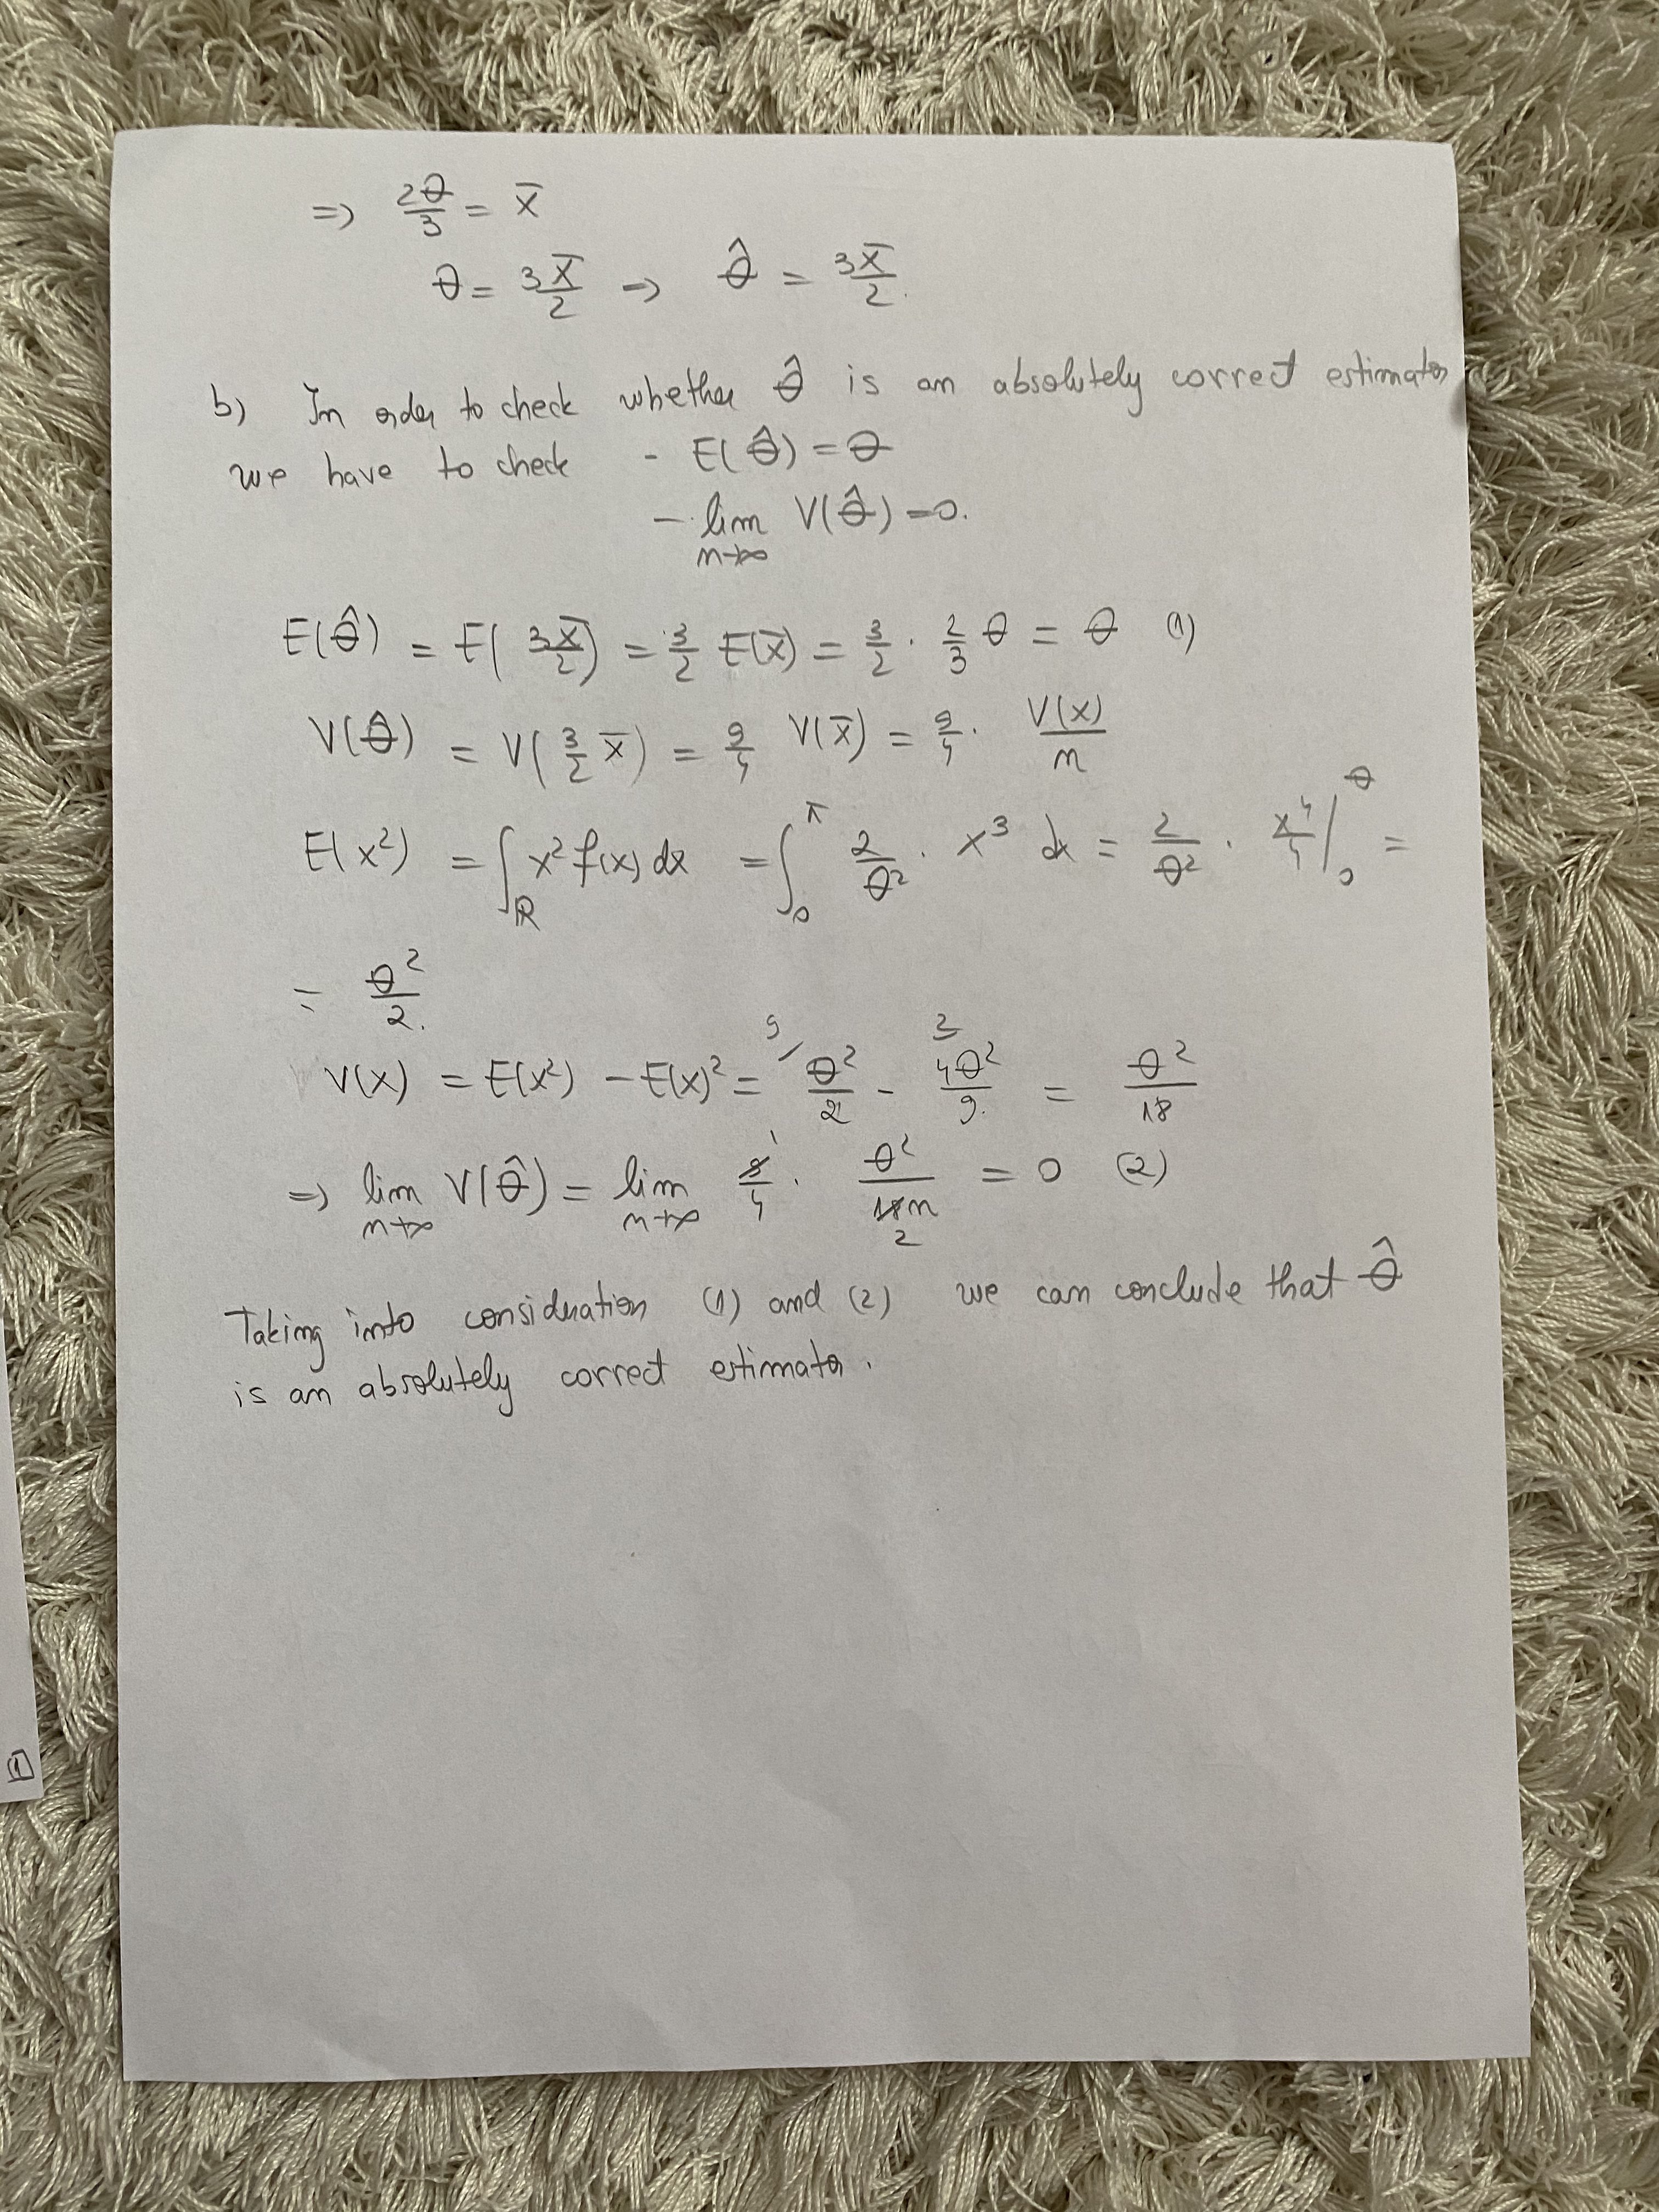 => 2θ/3 = x̄
θ = 3x̄/2 → θ̂ = 3x̄/2.
b) In order to check whether θ̂ is an absolutely correct estimator
we have to check - E(θ̂) = θ
- lim n→∞ V(θ̂) = 0.
E(θ̂) = E(3x̄/2) = 3/2 E(x̄) = 3/2 · 2/3 θ = θ (1)
V(θ̂) = V(3/2 x̄) = 9/4 V(x̄) = 9/4 · V(x)/n
E(x²) = ∫ℝ x² f(x) dx = ∫₀^π 2/θ² · x³ dx = 2/θ² · x⁴/4 |₀^θ =
= θ²/2.
V(x) = E(x²) - E(x)² = ⁹⁄ θ²/2 - ² 4θ²/9 = θ²/18
=> lim n→∞ V(θ̂) = lim n→∞ 9/4 · θ²/18n = 0 (2)
1 2
Taking into consideration (1) and (2) we can conclude that θ̂
is an absolutely correct estimator.
1